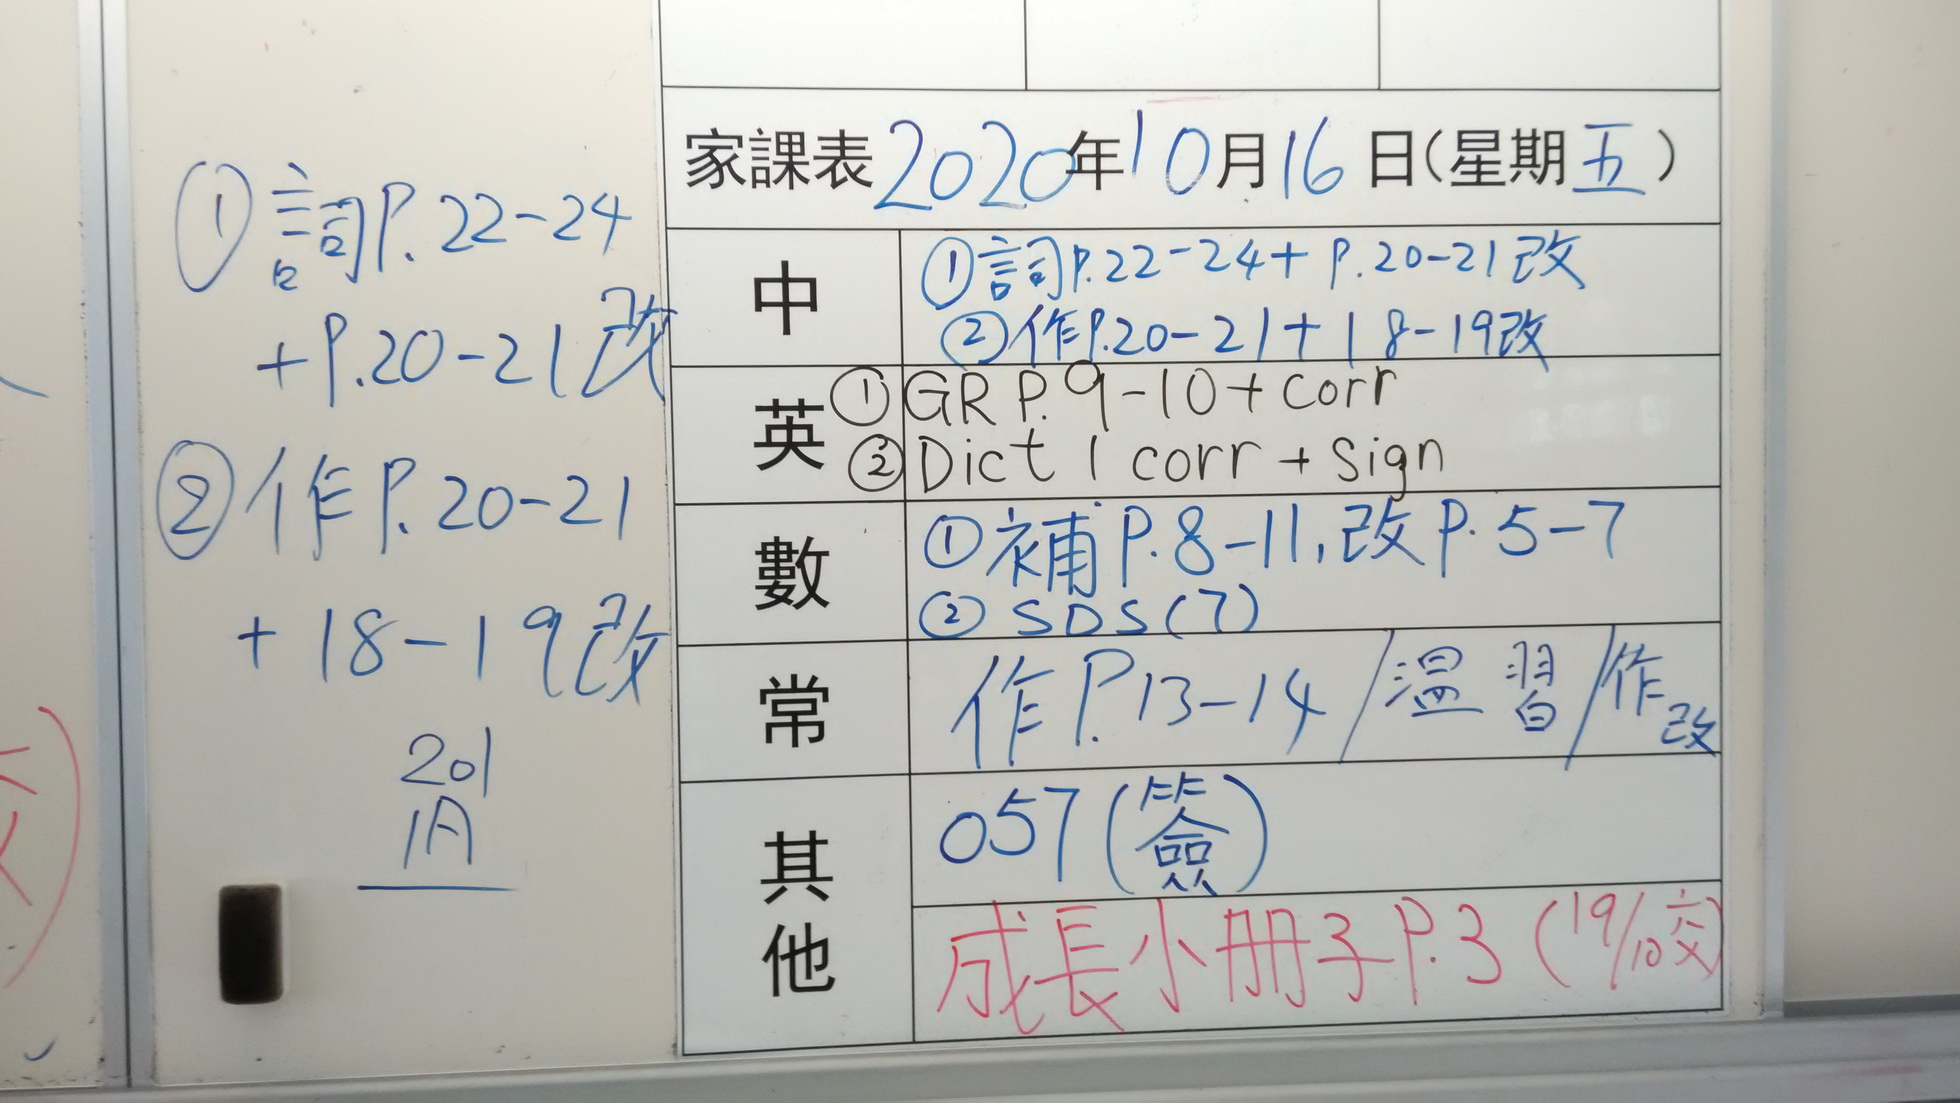 ① 詞P.22-24
+P.20-21改
② 作P.20-21
+18-19改
201
1A
家課表2020年10月16日(星期五)
中
①詞P.22-24+P.20-21改
②作P.20-21+18-19改
英
①GR P.9-10+corr
②Dict 1 corr + sign
數
①補P.8-11,改P.5-7
②SDS(7)
常
作P.13-14/溫習/作改
其他
057(簽)
成長小册子P.3(19/10交)